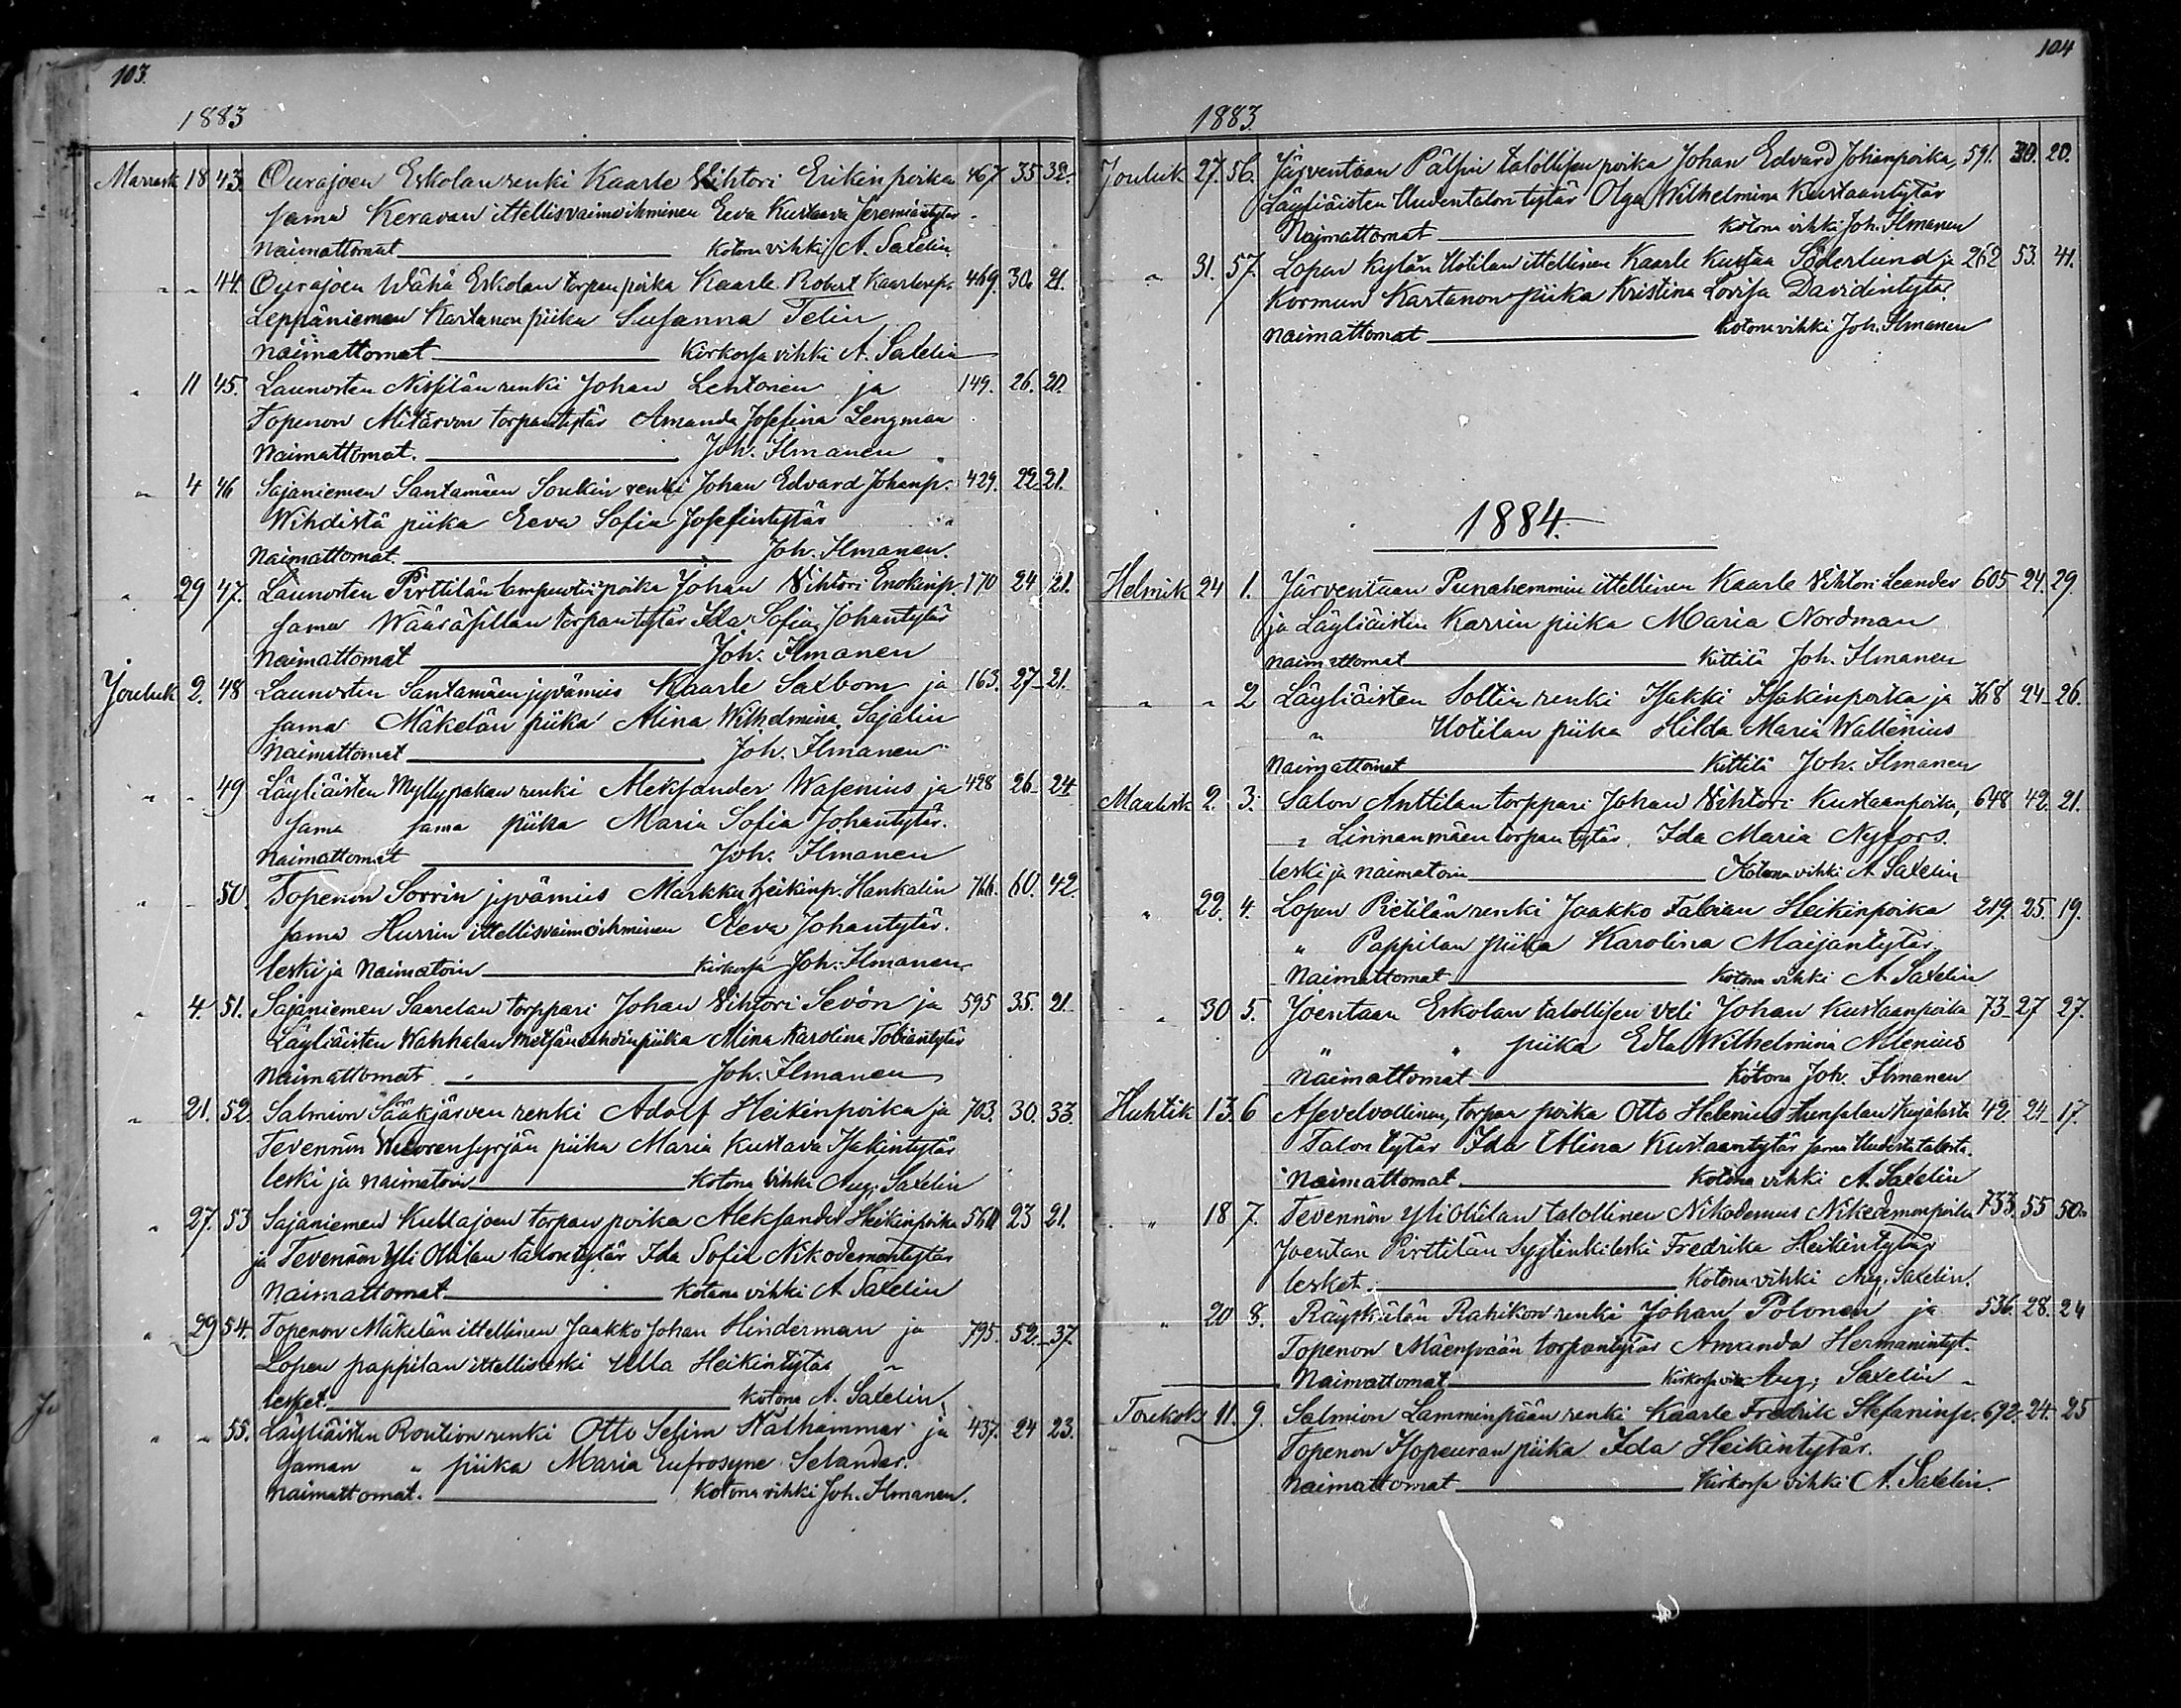 103.
1883
Marrask 18 43. Ourajoen Eskolan renki Kaarle Wihtori Erikinpoika 467 35 32.
sama Keravan ittellisvaimoihminen Eeva Kustaava Jeremiäntytär
Naimattomat kotona vihki A. Saxelin
" " 44. Ourajoen Wähä Eskolan torpan poika Kaarle Robert Kaarlenp. 469. 30. 21.
Leppäniemen Kartanon piika Susanna Telin
Naimattomat Kirkossa vihki A. Saxelin
" 11 45. Launosten Nissilän renki Johan Lentonen ja 149. 26. 20.
Topenon Mitärvon torpantytär Amanda Josefina Lengman
Naimattomat. Joh. Ilmanen
" 4 46 Sajaniemen Santamäen Soukin renki Johan Edvard Johanp. 429. 22. 21.
Wihdistä piika Eeva Sofia Josefintytär
Naimattomat. Joh. Ilmanen.
" 29 47. Launosten Pirttilän lampuotin poika Johan Wihtori Enokinp. 170 24 21.
sama Wääräsillan torpantytär Ida Sofia Johantytär
Naimattomat Joh. Ilmanen
Jouluk 2. 48 Launosten Santamäen jyvämies Kaarle Saxbom ja 163. 27 21.
sama Mäkelän piika Mina Wilhelmina Sajalin
Naimattomat Joh. Ilmanen
" " 49 Läyliäisten Myllypakan renki Aleksander Wasenius ja 428 26 24
sama sama piika Maria Sofia Johantytär.
Naimattomat Joh. Ilmanen
" " 50. Topenon Sorrin jyvämies Markku Heikinp. Hankalin 766. 60. 42.
sama Hurrin ittellisvaimoihminen Eeva Johantytär.
leski ja naimatoin Kirkossa Joh. Ilmanen
" 4. 51. Sajaniemen Saarelan torppari Johan Wihtori Sevón ja 595 35. 21.
Läyliäisten Wahhalan metsänvahdin piika Mina Karolina Tobiantytär
Naimattomat Joh. Ilmanen
" 21. 52. Salmion Sääkjärven renki Adolf Heikinpoika ja 703. 30. 33.
Tevennön Wuorensyrjän piika Maria Kustava Isakintytär
leski ja naimatoin Kotona vihki Aug. Saxelin
" 27. 53 Sajaniemen Kullajoen torpan poika Aleksander Heikinpoika 560 23 21.
ja Tevennön Yli Ollilan talon tytär Ida Sofia Nikodemontytär
Naimattomat. Kotona vihki A Saxelin
" 29 54. Topenon Mäkelän ittellinen Jaakko Johan Hinderman ja 795. 52. 37.
Lopen pappilan ittellisleski Ulla Heikintytär
lesket. kotona A. Saxelin
" " 55. Läyliäisten Roution renki Otto Selim Stälhammar ja 437. 24 23.
saman " piika Maria Eufrosyne Selander.
Naimattomat. Kotona vihki Joh. Ilmanen.
104
1883.
Jouluk 27. 56. Järventaan Pälsin talollisen poika Johan Edvard Johanpoika, 591. 30. 20.
Läyliäisten Uudentalon tytär Olga Wilhelmina Kustaantytär
Naimattomat Kotona vihki Joh. Ilmanen
" 31. 57. Lopen kylän Uotilan ittellinen Kaarle Kustaa Söderlund ja 262 53. 41.
Kormun Kartanon piika Kristina Lovisa Davidintytär
Naimattomat Kotona vihki Joh. Ilmanen
1884.
Helmik 24 1. Järventaan Punahemmin ittellinen Kaarle Wihtori Leander 605 24. 29.
ja Läyliäisten Karrin piika Maria Nordman
naimattomat Kittilä Joh. Ilmanen
" " 2 Läyliäisten Soltin renki Isakki Isakinpoika ja 368 24 26.
" Uotilan piika Hilda Maria Wallenius
Naimattomat Kittilä Joh. Ilmanen
Maalisk 2. 3. Salon Anttilan torppari Johan Wihtori Kustaanpoika, 648 42. 21.
" Linnanmäen torpan tytär, Ida Maria Nyfors.
leski ja naimatoin Kotona vihki A. Saxelin
" 22. 4. Lopen Pietilän renki Jaakko Fabian Heikinpoika 219. 25. 19.
" Pappilan piika Karolina Maijantytär
Naimattomat Kotona vihki A Saxelin
" 30 5. Joentaan Eskolan talollisen veli Johan Kustaanpoika 73 27 27.
" " piika Edla Wilhelmina Alenius
Naimattomat Kotona Joh. Ilmanen
Huhtik 13. 6 Asevelvollinen, torpan poika Otto Helenius Kujalasta 42. 24 17.
Talon tytär Ida Mina Kustaantytär sama Uudestatalosta.
Naimattomat Kotona vihki A. Saxelin
" 18 7. Tevennön Yli Ollilan talollinen Nikodemus Nikodemonpoika 733. 55 50.
Joentan Pirttilän Syytinkileski Fredrika Heikintytär
lesket. Kotona vihki Aug. Saxelin.
" 20 8. Räyskälän Rahikon renki Johan Polonen ja 536. 28. 24
Topenon Mäenpään torpantytär Amanda Hermanintyt.
Naimattomat Kirkossa vih. Aug. Saxelin
Toukok 11. 9. Salmion Lamminpään renki Kaarle Fredrik Stefaninp. 692. 24. 25
Topenon Isopeuran piika Ida Heikintytär.
Naimattomat Kirkossa vihki A. Saxelin.